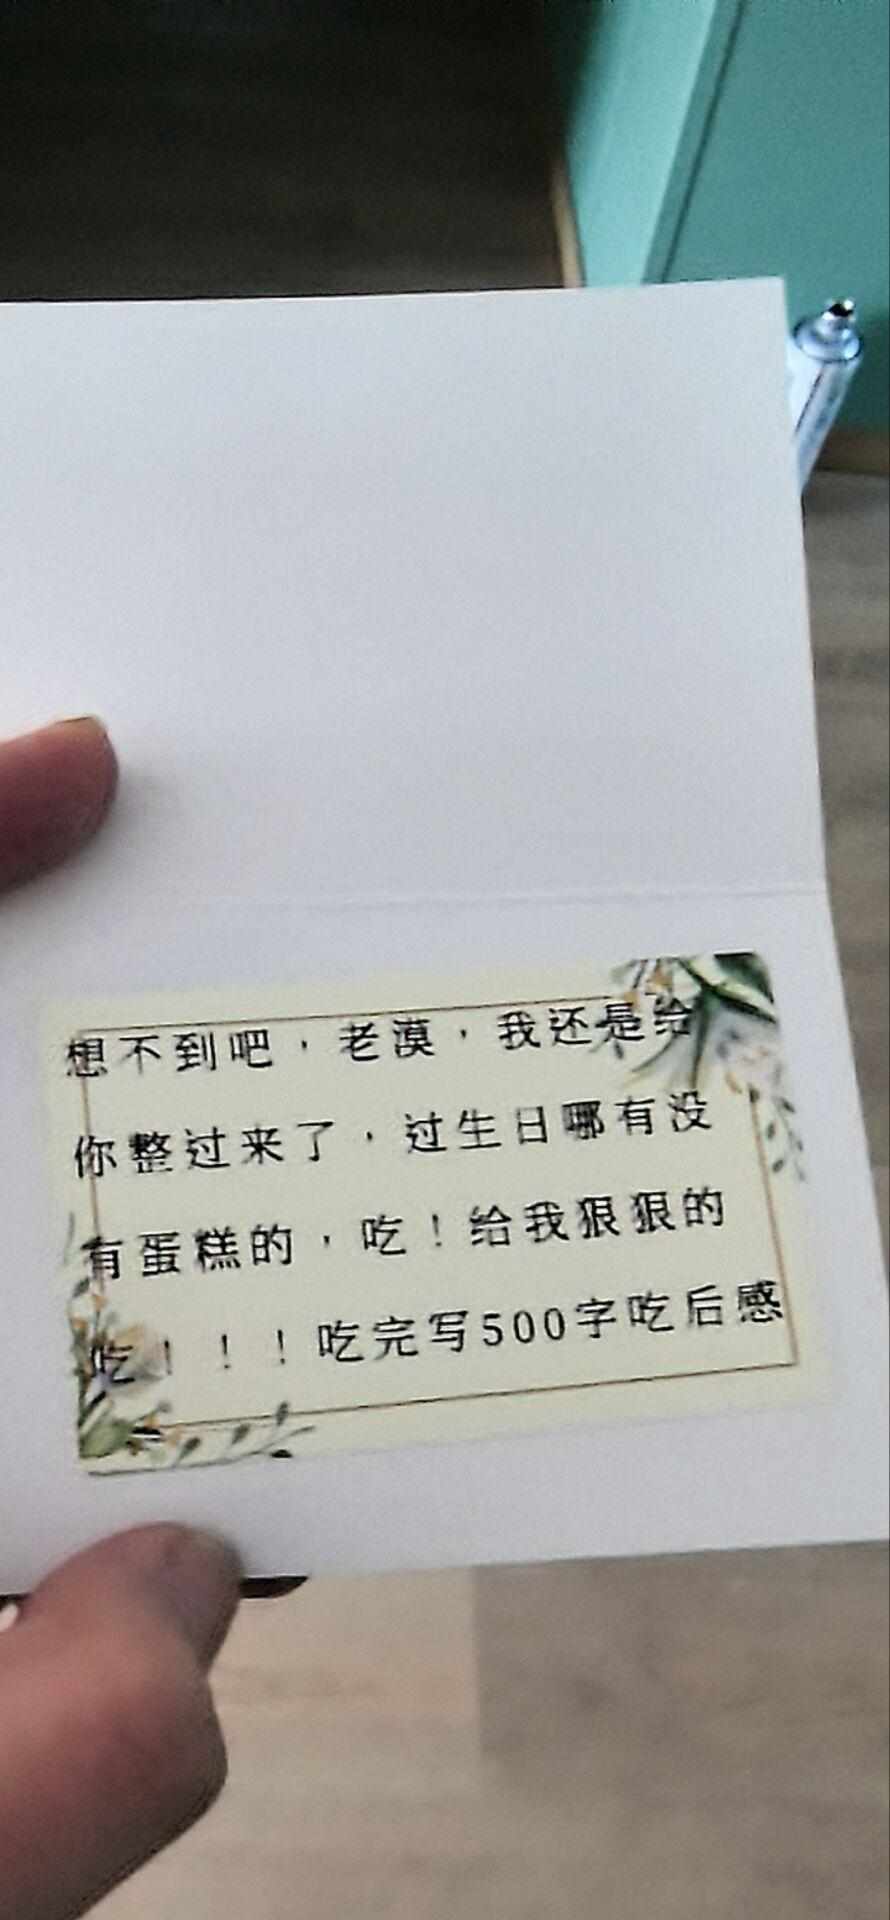 想不到吧，老漠，我还是给
你整过来了，过生日哪有没
有蛋糕的，吃！给我狠狠的
吃！！！吃完写500字吃后感